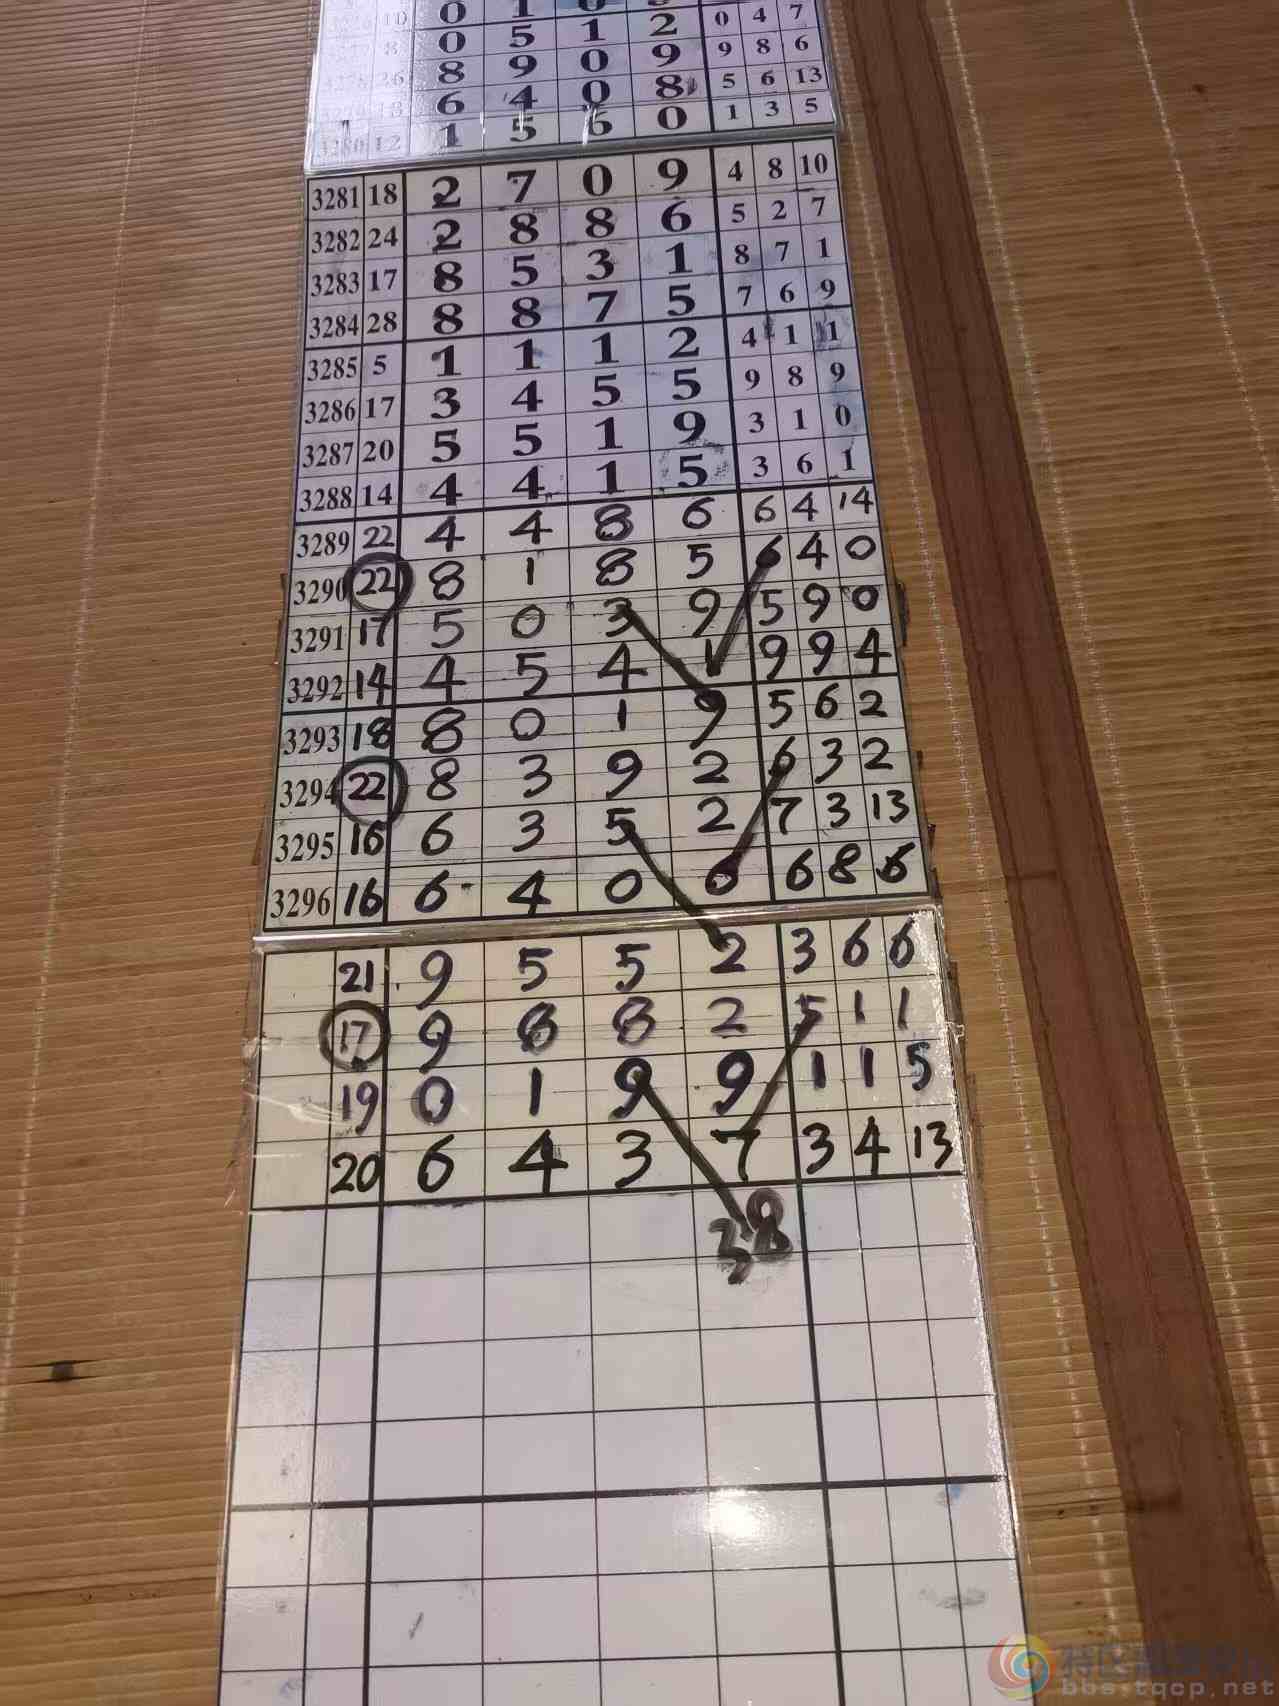 0 5 1 2 0 4 7
8 0 5 1 2 9 8 6
8 9 0 9 5 6 13
6 4 0 8 1 3 5
3280 12 1 5 6 0
3281 18 2 7 0 9 4 8 10
3282 24 2 8 8 6 5 2 7
3283 17 8 5 3 1 8 7 1
3284 28 8 8 7 5 7 6 9
3285 5 1 1 1 2 4 1 1
3286 17 3 4 5 5 9 8 9
3287 20 5 5 1 9 3 1 0
3288 14 4 4 1 5 3 6 1
3289 22 4 4 8 6 6 4 14
3290 22 8 1 8 5 6 4 0
3291 17 5 0 3 9 5 9 0
3292 14 4 5 4 1 9 9 4
3293 18 8 0 1 9 5 6 2
3294 22 8 3 9 2 6 3 2
3295 16 6 3 5 2 7 3 13
3296 16 6 4 0 6 6 8 6
21 9 5 5 2 3 6 6
17 9 8 2 5 1 1
19 0 1 9 9 1 1 5
20 6 4 3 7 3 4 13
38
bbs.tqcp.net